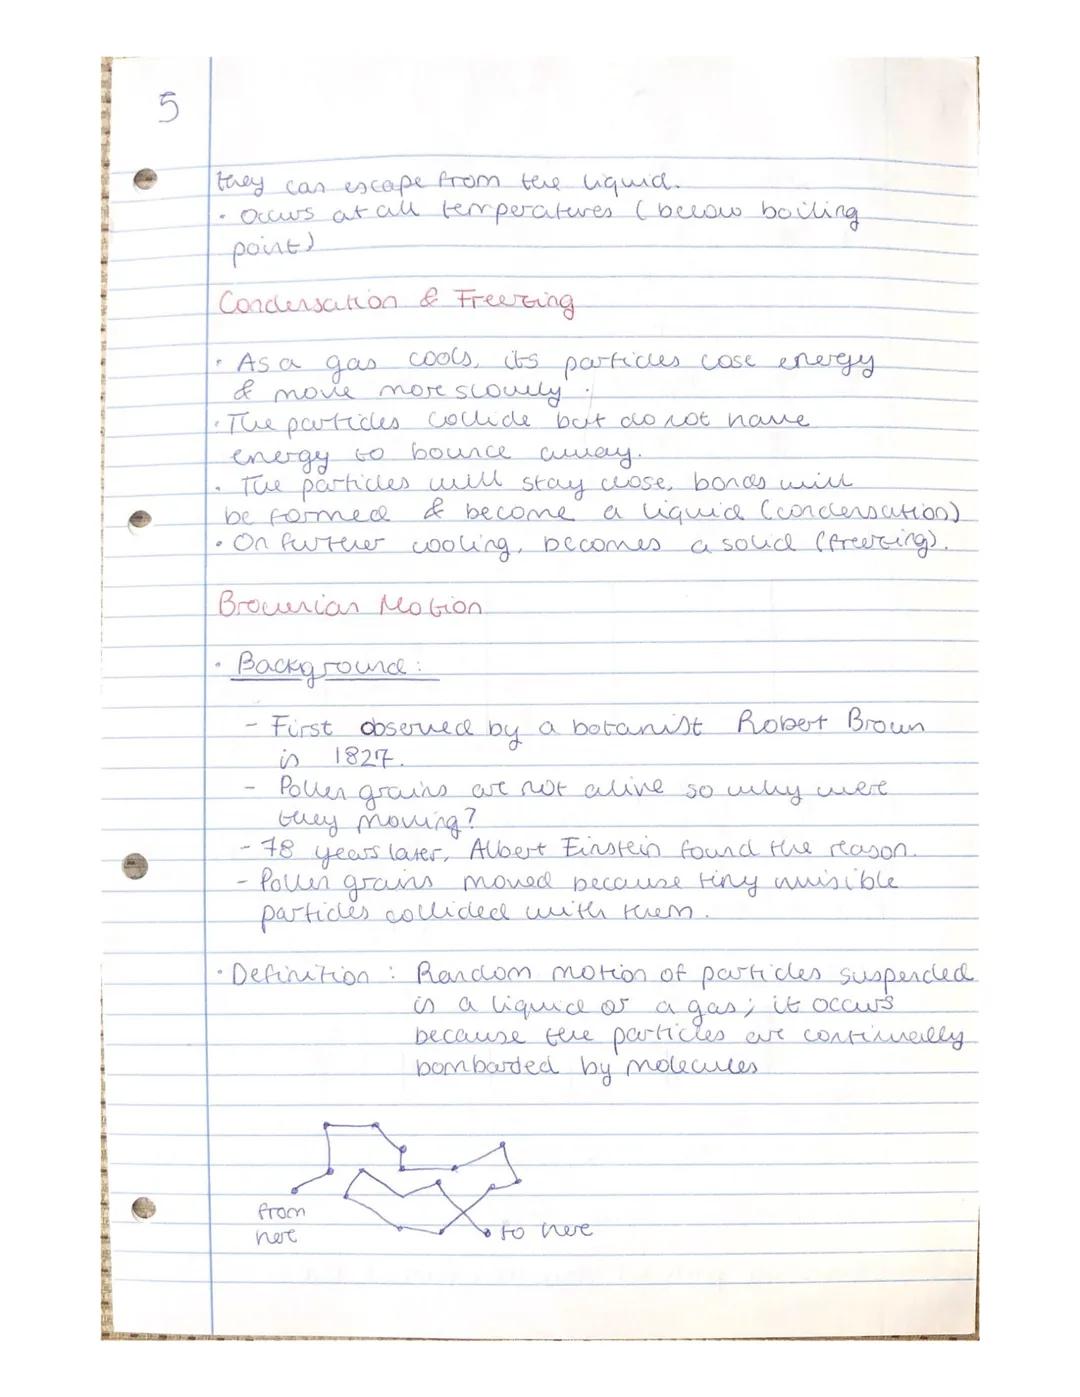 5
they can escape from the liquid.
• Occurs at all temperatures (below boiling
point)
Condensation & Freezing
• As a gas cools, its particles lose energy
& move more slowly.
• The particles collide but do not have
energy to bounce away.
• The particles will stay close, bonds will
be formed & become a liquid (condensation)
• On further cooling, becomes a solid (freezing).
Brownian Motion
• Background:
- First observed by a botanist Robert Brown
in 1827.
- Pollen grains are not alive so why were
they moving?
- 78 years later, Albert Einstein found the reason.
- Pollen grains moved because tiny invisible
particles collided with them.
• Definition: Random motion of particles suspended
in a liquid or a gas; it occurs
because the particles are continually
bombarded by molecules
from
here
to here